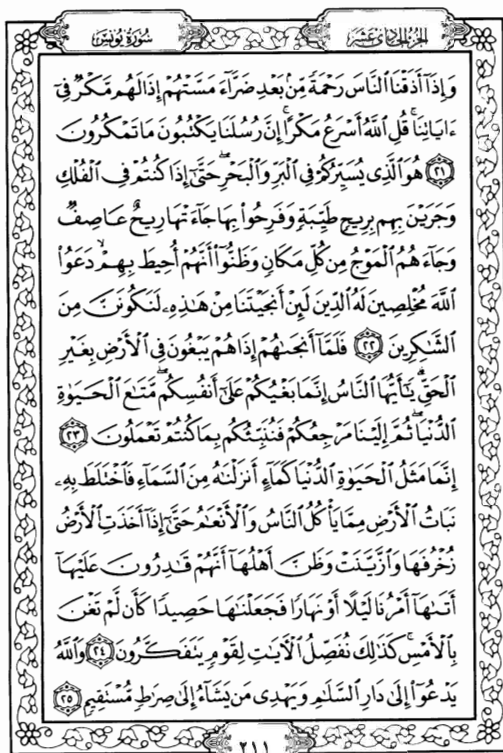 سُورَةُ يُونُسَ
الجُزْءُ الحَادِي عَشَرَ
وَإِذَآ أَذَقْنَا ٱلنَّاسَ رَحْمَةً مِّنۢ بَعْدِ ضَرَّآءَ مَسَّتْهُمْ إِذَا لَهُم مَّكْرٌ فِىٓ
ءَايَاتِنَا ۚ قُلِ ٱللَّهُ أَسْرَعُ مَكْرًا ۚ إِنَّ رُسُلَنَا يَكْتُبُونَ مَا تَمْكُرُونَ
٢١ هُوَ ٱلَّذِى يُسَيِّرُكُمْ فِى ٱلْبَرِّ وَٱلْبَحْرِ ۖ حَتَّىٰٓ إِذَا كُنتُمْ فِى ٱلْفُلْكِ
وَجَرَيْنَ بِهِم بِرِيحٍ طَيِّبَةٍ وَفَرِحُوا۟ بِهَا جَآءَتْهَا رِيحٌ عَاصِفٌ
وَجَآءَهُمُ ٱلْمَوْجُ مِن كُلِّ مَكَانٍ وَظَنُّوٓا۟ أَنَّهُمْ أُحِيطَ بِهِمْ ۙ دَعَوُا۟
ٱللَّهَ مُخْلِصِينَ لَهُ ٱلدِّينَ لَئِنْ أَنجَيْتَنَا مِنْ هَٰذِهِۦ لَنَكُونَنَّ مِنَ
ٱلشَّٰكِرِينَ ٢٢ فَلَمَّآ أَنجَىٰهُمْ إِذَا هُمْ يَبْغُونَ فِى ٱلْأَرْضِ بِغَيْرِ
ٱلْحَقِّ ۗ يَٰٓأَيُّهَا ٱلنَّاسُ إِنَّمَا بَغْيُكُمْ عَلَىٰٓ أَنفُسِكُم ۖ مَّتَٰعَ ٱلْحَيَوٰةِ
ٱلدُّنْيَا ۖ ثُمَّ إِلَيْنَا مَرْجِعُكُمْ فَنُنَبِّئُكُم بِمَا كُنتُمْ تَعْمَلُونَ ٢٣
إِنَّمَا مَثَلُ ٱلْحَيَوٰةِ ٱلدُّنْيَا كَمَآءٍ أَنزَلْنَٰهُ مِنَ ٱلسَّمَآءِ فَٱخْتَلَطَ بِهِۦ
نَبَاتُ ٱلْأَرْضِ مِمَّا يَأْكُلُ ٱلنَّاسُ وَٱلْأَنْعَٰمُ حَتَّىٰٓ إِذَآ أَخَذَتِ ٱلْأَرْضُ
زُخْرُفَهَا وَٱزَّيَّنَتْ وَظَنَّ أَهْلُهَآ أَنَّهُمْ قَٰدِرُونَ عَلَيْهَآ
أَتَىٰهَآ أَمْرُنَا لَيْلًا أَوْ نَهَارًا فَجَعَلْنَٰهَا حَصِيدًا كَأَن لَّمْ تَغْنَ
بِٱلْأَمْسِ ۚ كَذَٰلِكَ نُفَصِّلُ ٱلْآيَٰتِ لِقَوْمٍ يَتَفَكَّرُونَ ٢٤ وَٱللَّهُ
يَدْعُوٓا۟ إِلَىٰ دَارِ ٱلسَّلَٰمِ وَيَهْدِى مَن يَشَآءُ إِلَىٰ صِرَٰطٍ مُّسْتَقِيمٍ ٢٥
٢١١